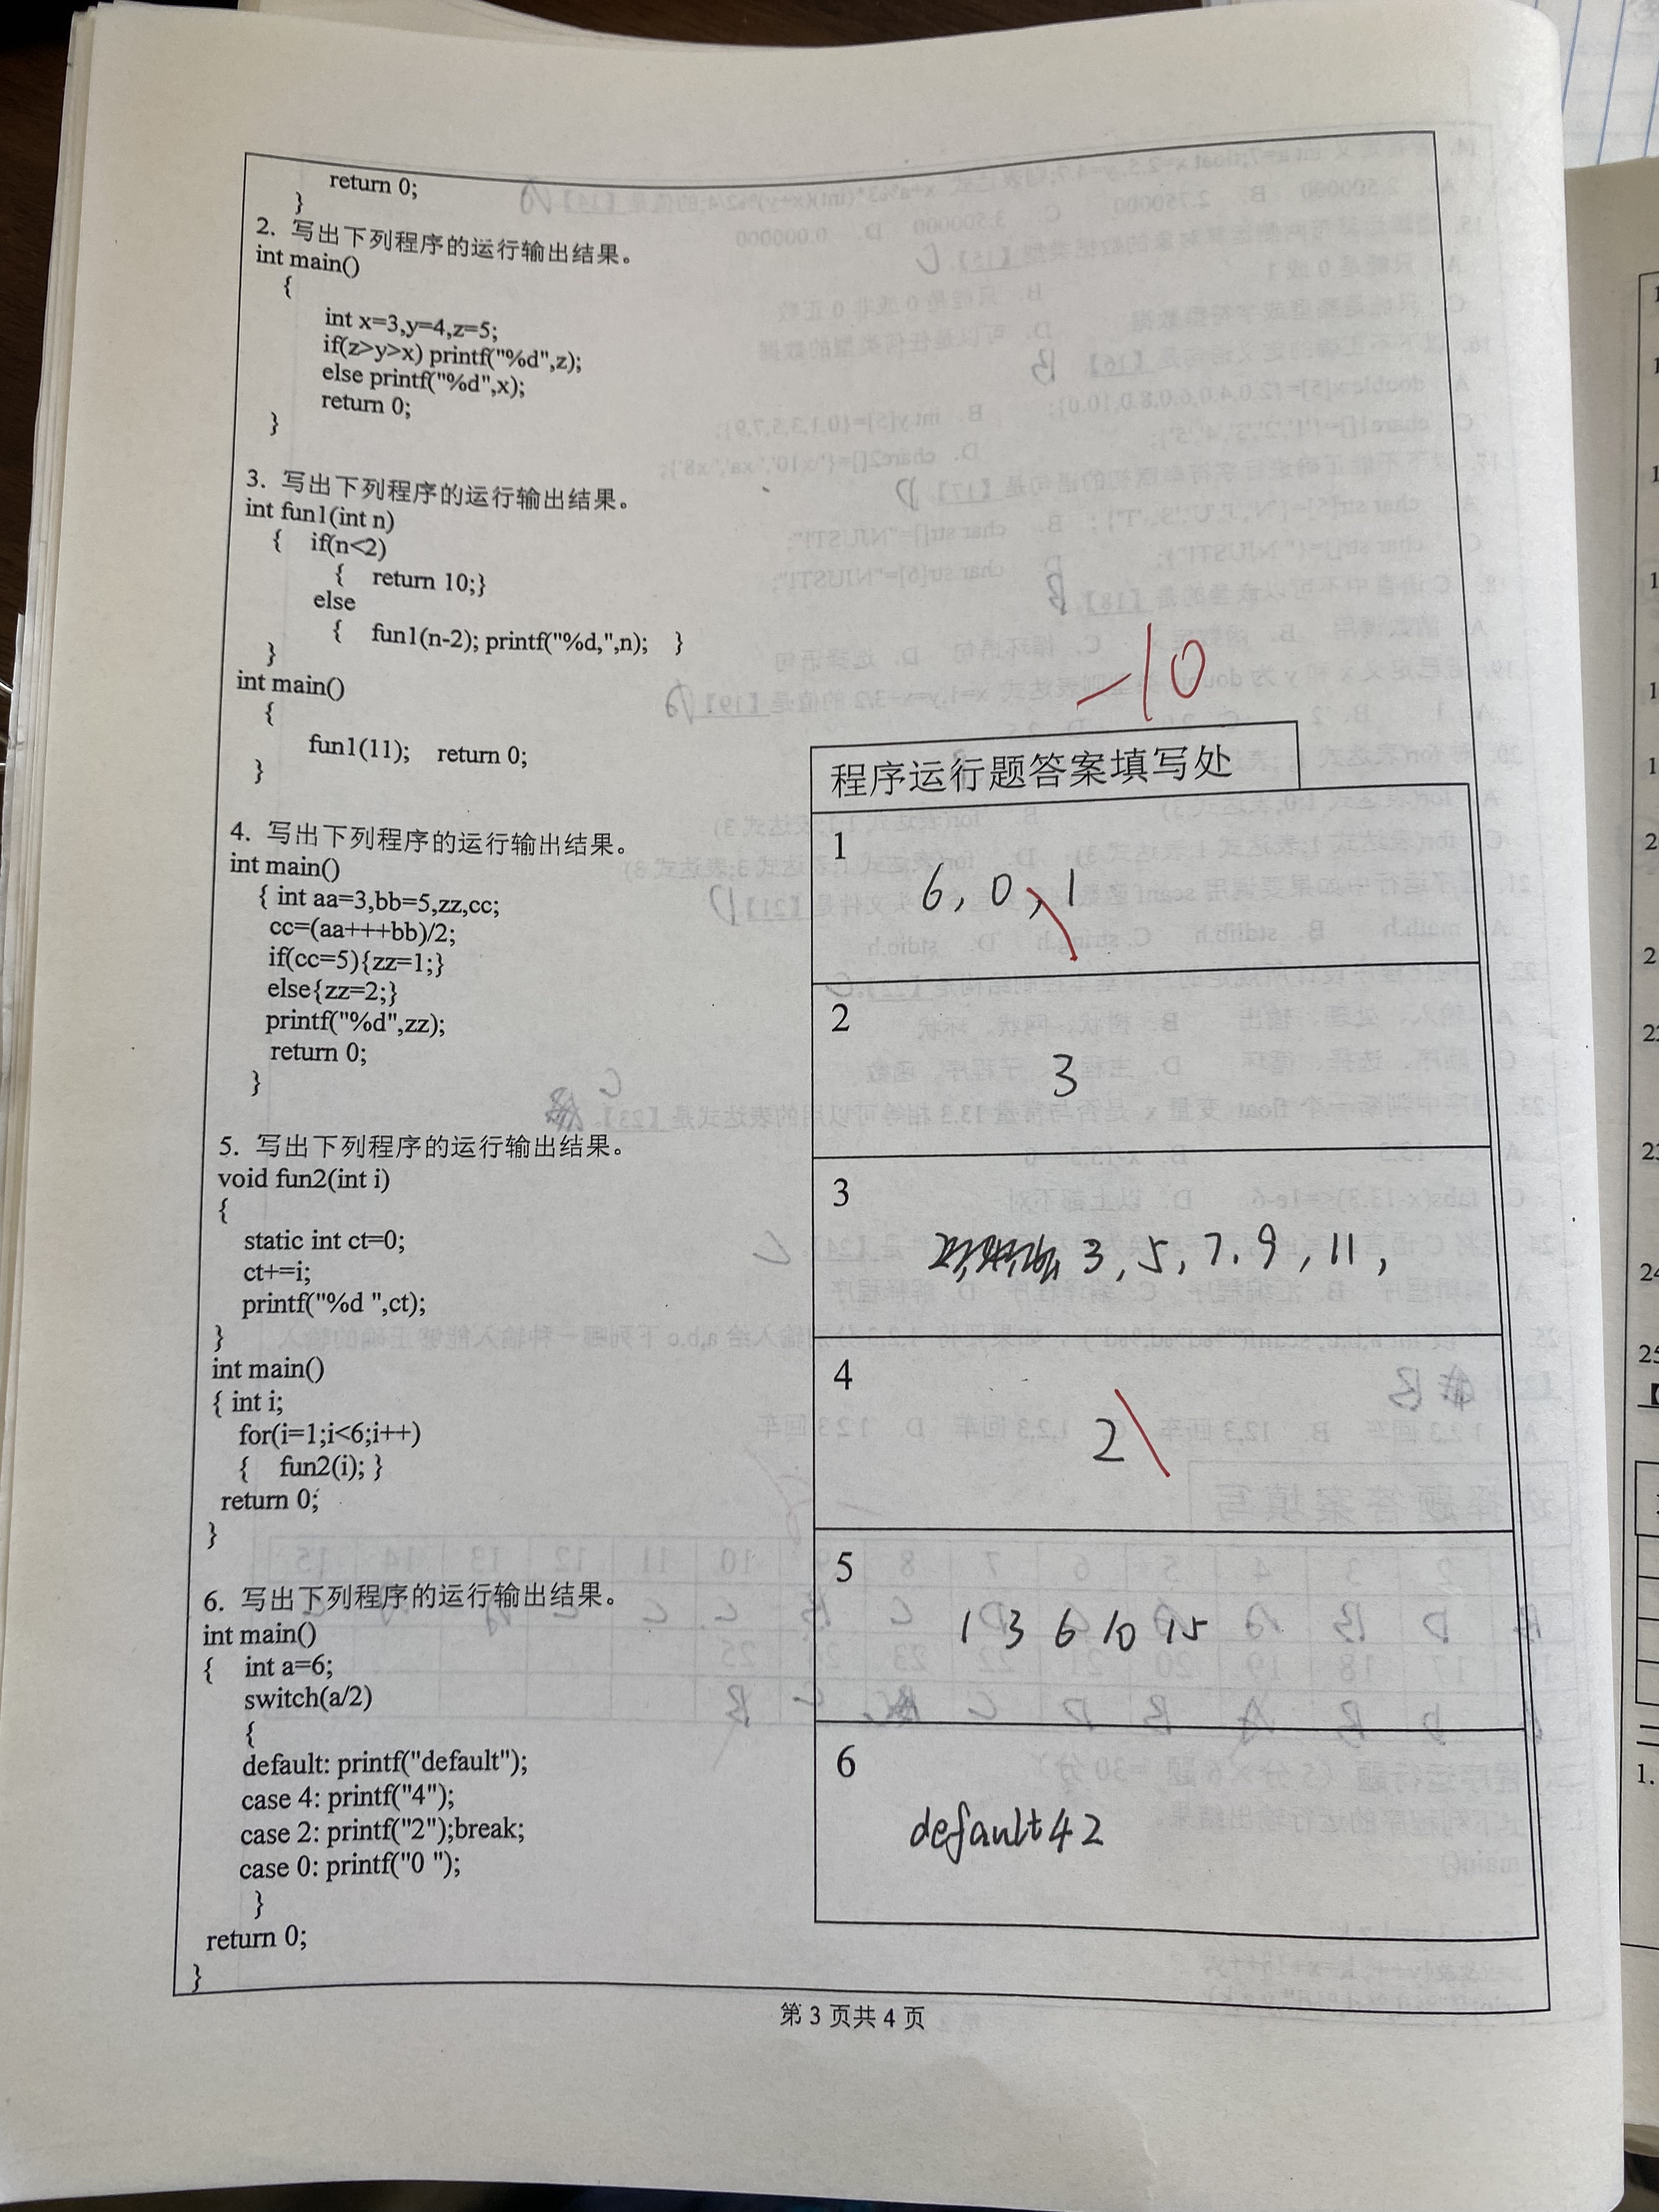 return 0;
}
2. 写出下列程序的运行输出结果。
int main()
{
int x=3,y=4,z=5;
if(z>y>x) printf("%d",z);
else printf("%d",x);
return 0;
}
3. 写出下列程序的运行输出结果。
int fun1(int n)
{ if(n<2)
{ return 10;}
else
{ fun1(n-2); printf("%d,",n); }
}
int main()
{
fun1(11); return 0;
}
4. 写出下列程序的运行输出结果。
int main()
{ int aa=3,bb=5,zz,cc;
cc=(aa+++bb)/2;
if(cc=5){zz=1;}
else{zz=2;}
printf("%d",zz);
return 0;
}
5. 写出下列程序的运行输出结果。
void fun2(int i)
{
static int ct=0;
ct+=i;
printf("%d ",ct);
}
int main()
{ int i;
for(i=1;i<6;i++)
{ fun2(i); }
return 0;
}
6. 写出下列程序的运行输出结果。
int main()
{ int a=6;
switch(a/2)
{
default: printf("default");
case 4: printf("4");
case 2: printf("2");break;
case 0: printf("0 ");
}
return 0;
}
-10
程序运行题答案填写处
1
6, 0, 1
2
3
3
3, 5, 7, 9, 11,
4
2
5
1 3 6 10 15
6
default42
第 3 页共 4 页